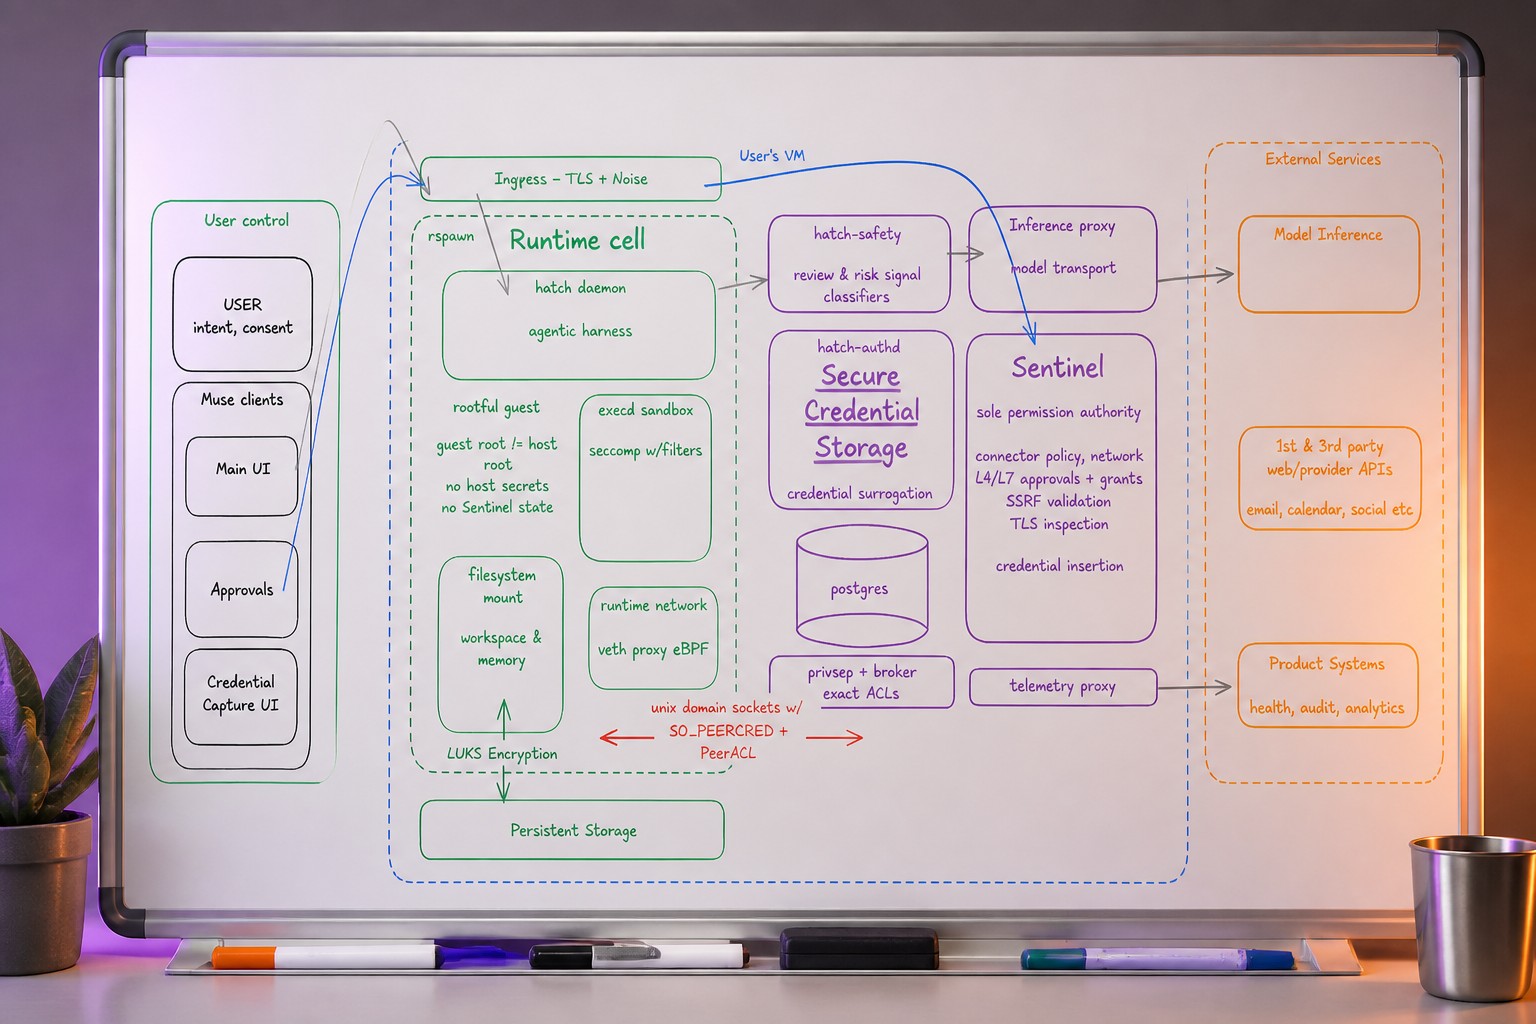 User control
USER
intent, consent
Muse clients
Main UI
Approvals
Credential
Capture UI
Ingress – TLS + Noise
User's VM
rspawn
Runtime cell
hatch daemon
agentic harness
rootful guest
guest root != host
root
no host secrets
no Sentinel state
execd sandbox
seccomp w/filters
filesystem
mount
workspace &
memory
runtime network
veth proxy eBPF
LUKS Encryption
Persistent Storage
unix domain sockets w/
SO_PEERCRED +
PeerACL
hatch-safety
review & risk signal
classifiers
Inference proxy
model transport
hatch-authd
Secure
Credential
Storage
credential surrogation
Sentinel
sole permission authority
connector policy, network
L4/L7 approvals + grants
SSRF validation
TLS inspection
credential insertion
postgres
privsep + broker
exact ACLs
telemetry proxy
External Services
Model Inference
1st & 3rd party
web/provider APIs
email, calendar, social etc
Product Systems
health, audit, analytics